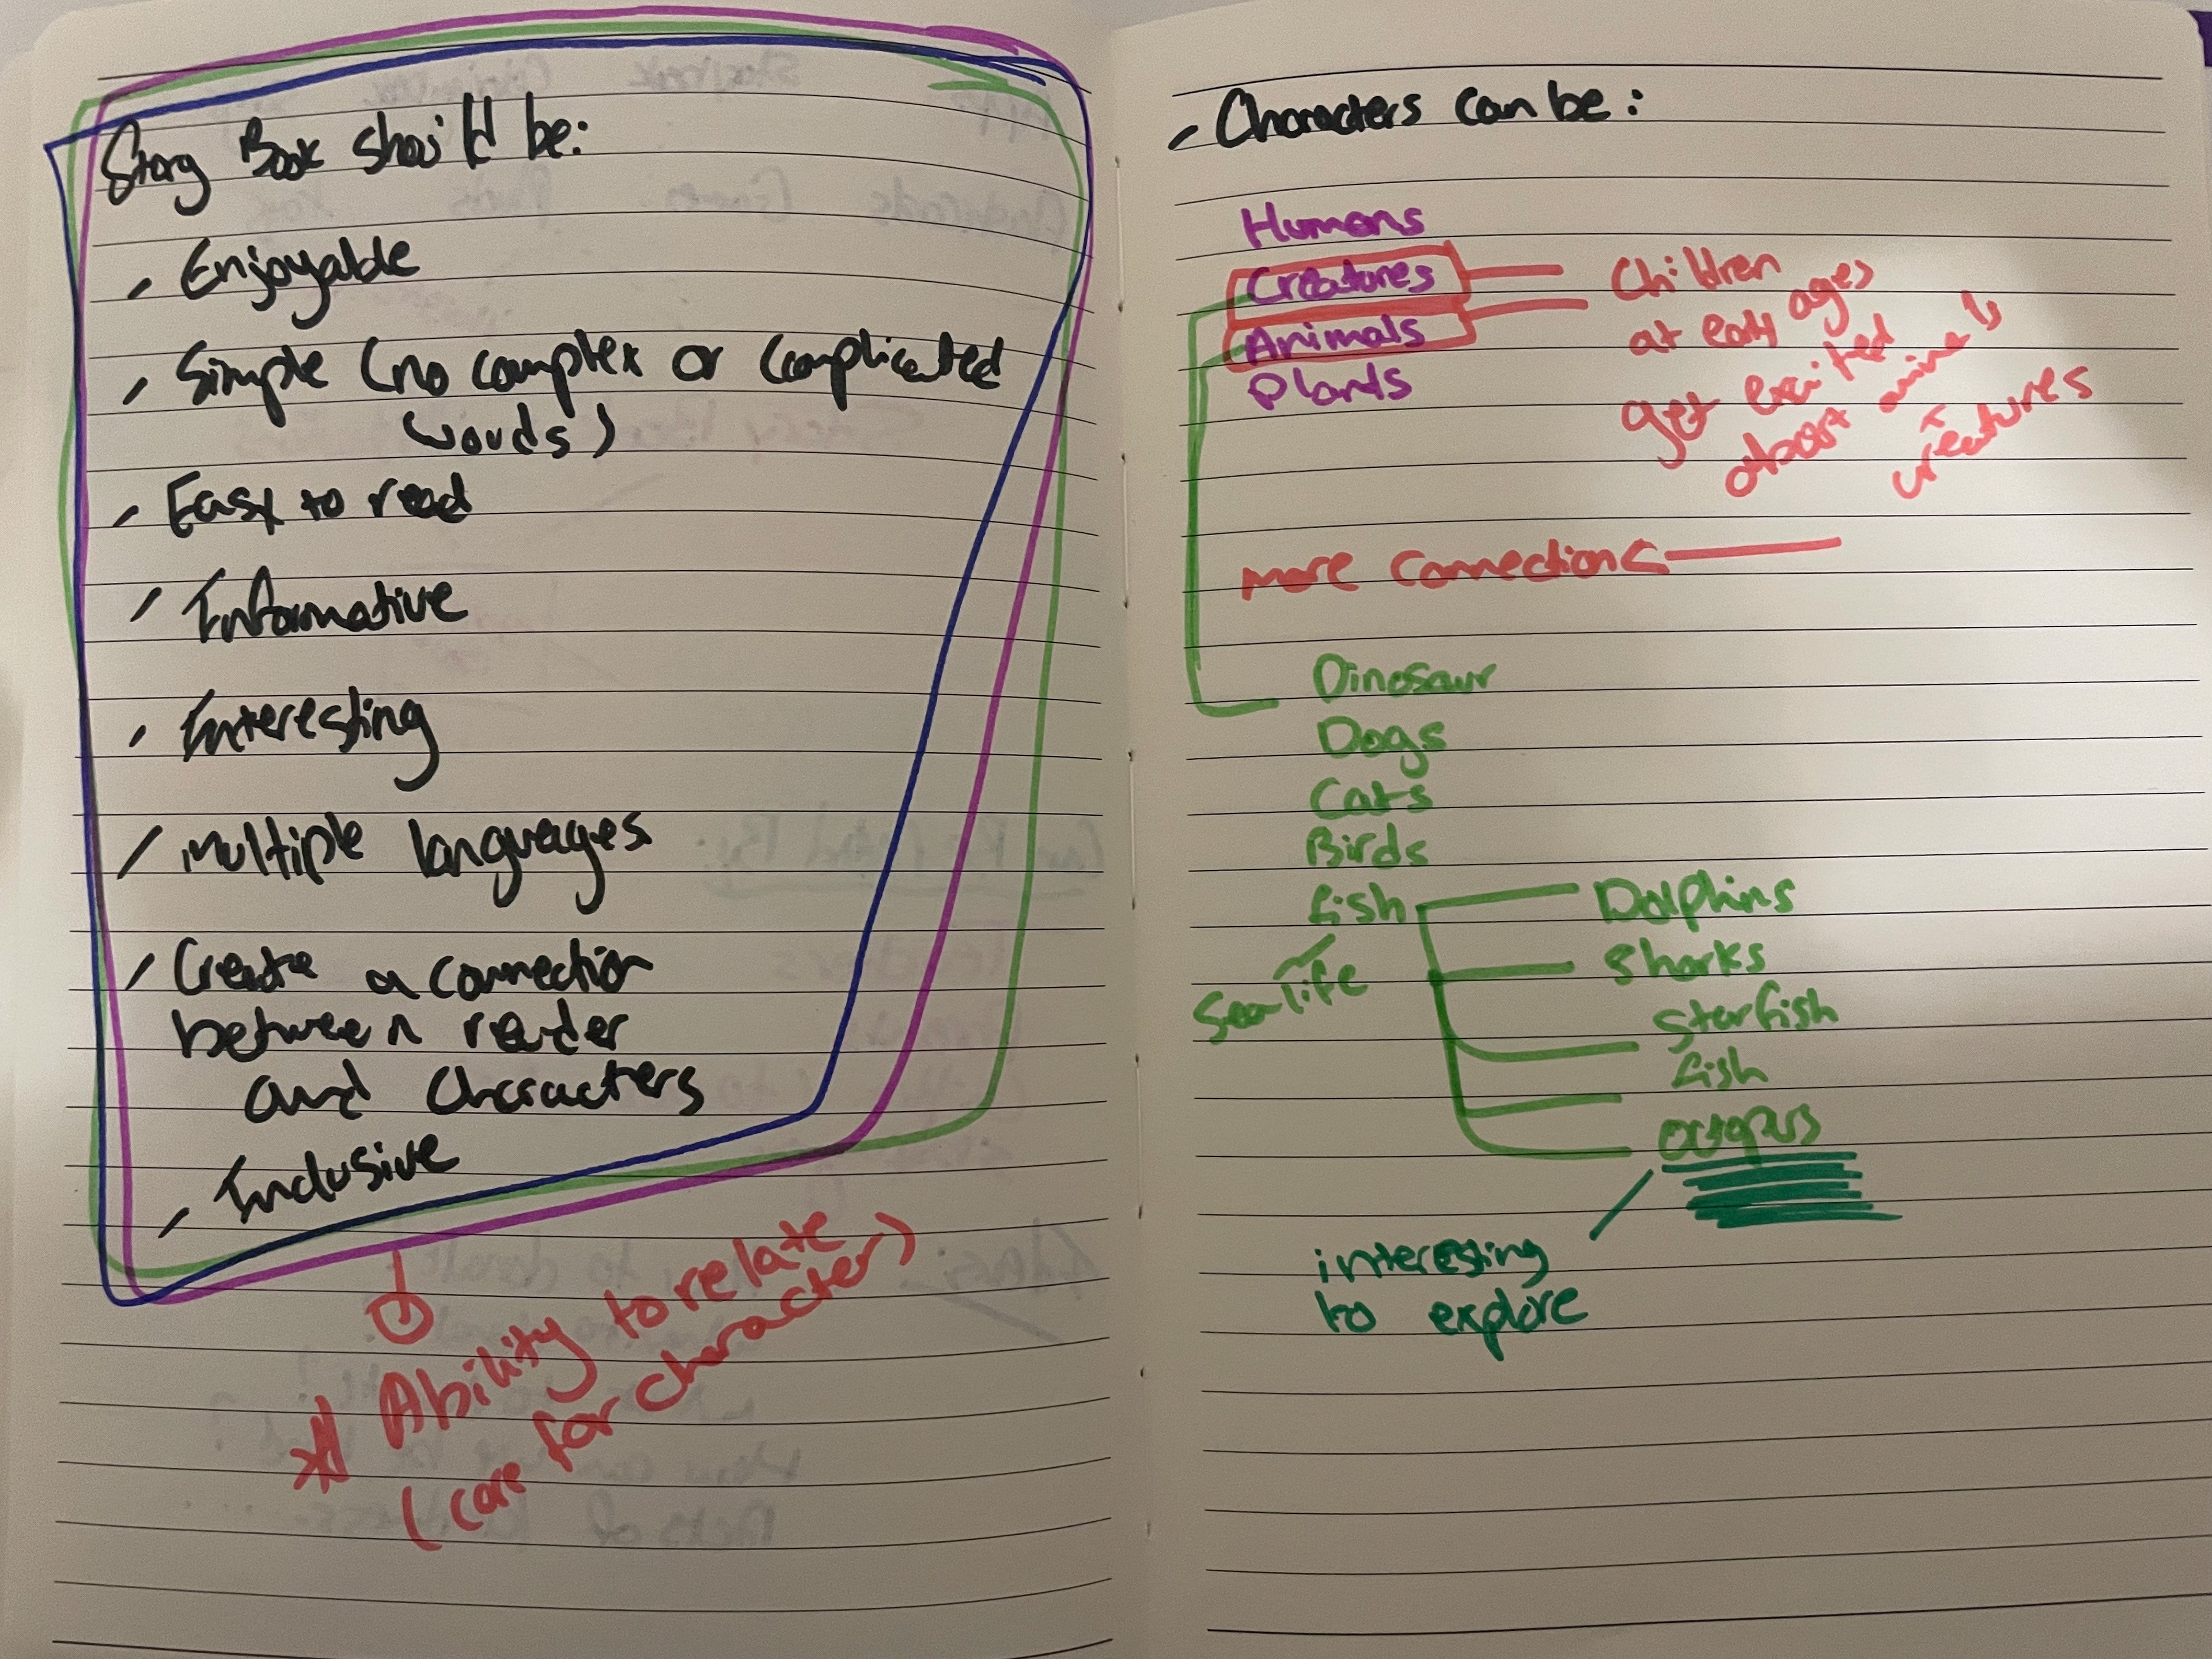 Story Book should be:
- Enjoyable
- Simple (no complex or complicated
words)
- Easy to read
- Informative
- Interesting
- Multiple languages
- Create a connection
between reader
and characters
- Inclusive
Ability to relate
(care for character)
- Characters can be:
Humans
Creatures
Animals
Plants
Children
at early ages
get excited
about animals
+
creatures
more connection
Dinosaur
Dogs
Cats
Birds
fish
sea life
Dolphins
Sharks
Starfish
fish
octopus
interesting
to explore